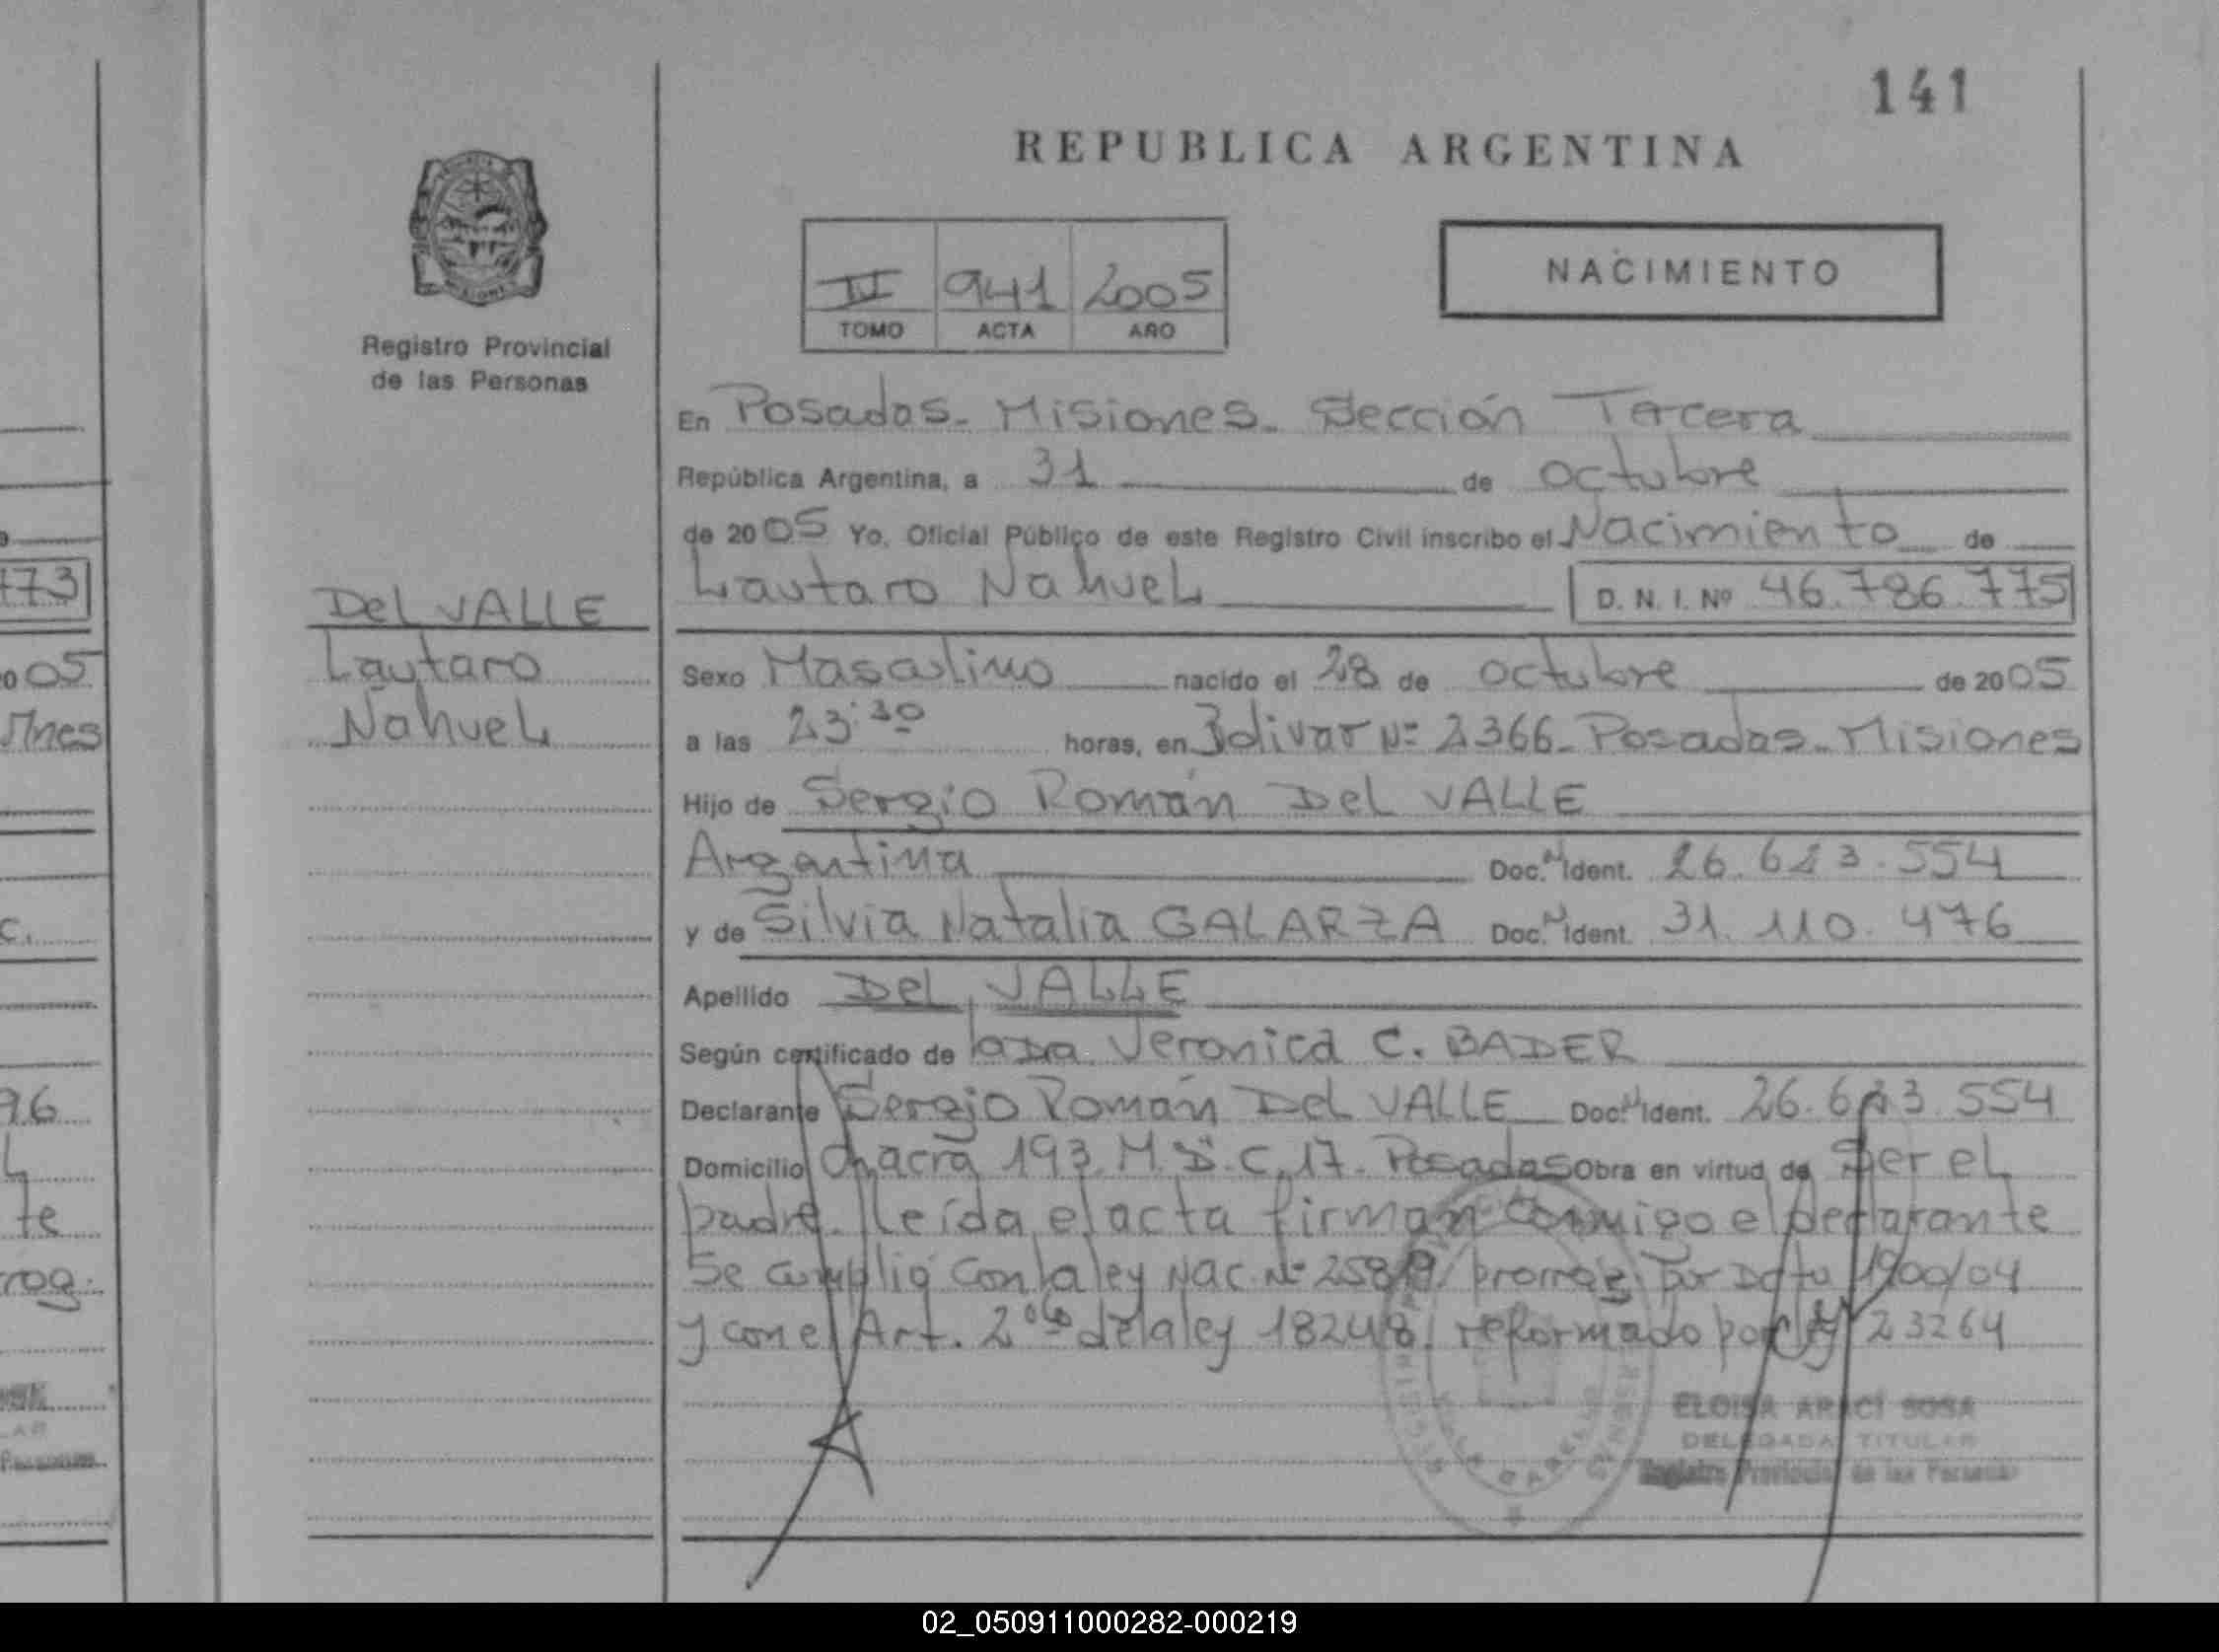 141
REPUBLICA ARGENTINA
II 941 2005
TOMO ACTA AÑO
NACIMIENTO
Registro Provincial
de las Personas
En Posadas - Misiones - Sección Tercera
República Argentina, a 31 de octubre
de 2005 Yo, Oficial Público de este Registro Civil inscribo el Nacimiento de
Lautaro Nahuel D. N. I. Nº 46.786.775
Del VALLE
Lautaro
Nahuel
Sexo Masculino nacido el 28 de octubre de 2005
a las 23:30 horas, en Bolivar Nº 2366 - Posadas - Misiones
Hijo de Sergio Román Del VALLE
Argentina Doc. N Ident. 26.623.554
y de Silvia Natalia GALARZA Doc. N Ident. 31.110.476
Apellido Del VALLE
Según certificado de la Dra. Veronica C. BADER
Declarante Sergio Román Del VALLE Doc. N Ident. 26.623.554
Domicilio Chacra 193. M. D. C. 17. Posadas Obra en virtud de Ser el
padre. Leída el acta firman conmigo el declarante
Se cumplió con la ley Nac. Nº 25819 por 1900/04
y con el Art. 2º de la ley 18248 reformado por ley 23264
ELOISA ARACI SOSA
DELEGADA TITULAR
Registro Provincial de las Personas
773
2005
96
te
02_050911000282-000219